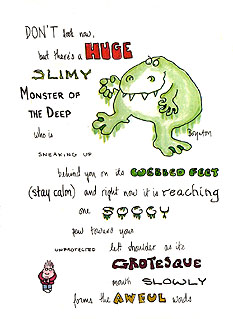 DON'T look now,
but there's a HUGE
SLIMY
MONSTER OF
THE DEEP
who is
Boynton
SNEAKING UP
behind you on its WEBBED FEET
(stay calm) and right now it is reaching
one SOGGY
paw toward your
UNPROTECTED left shoulder as its
GROTESQUE
mouth SLOWLY
forms the AWFUL words